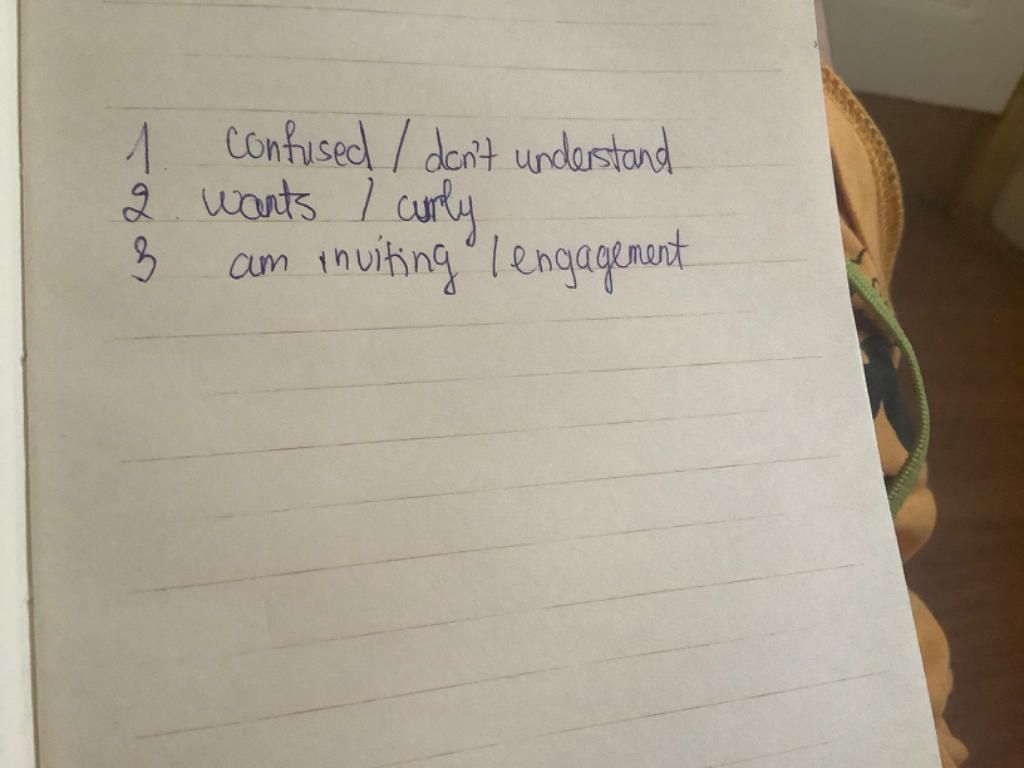 1 confused / don't understand
2. wants / curly
3 am inviting / engagement